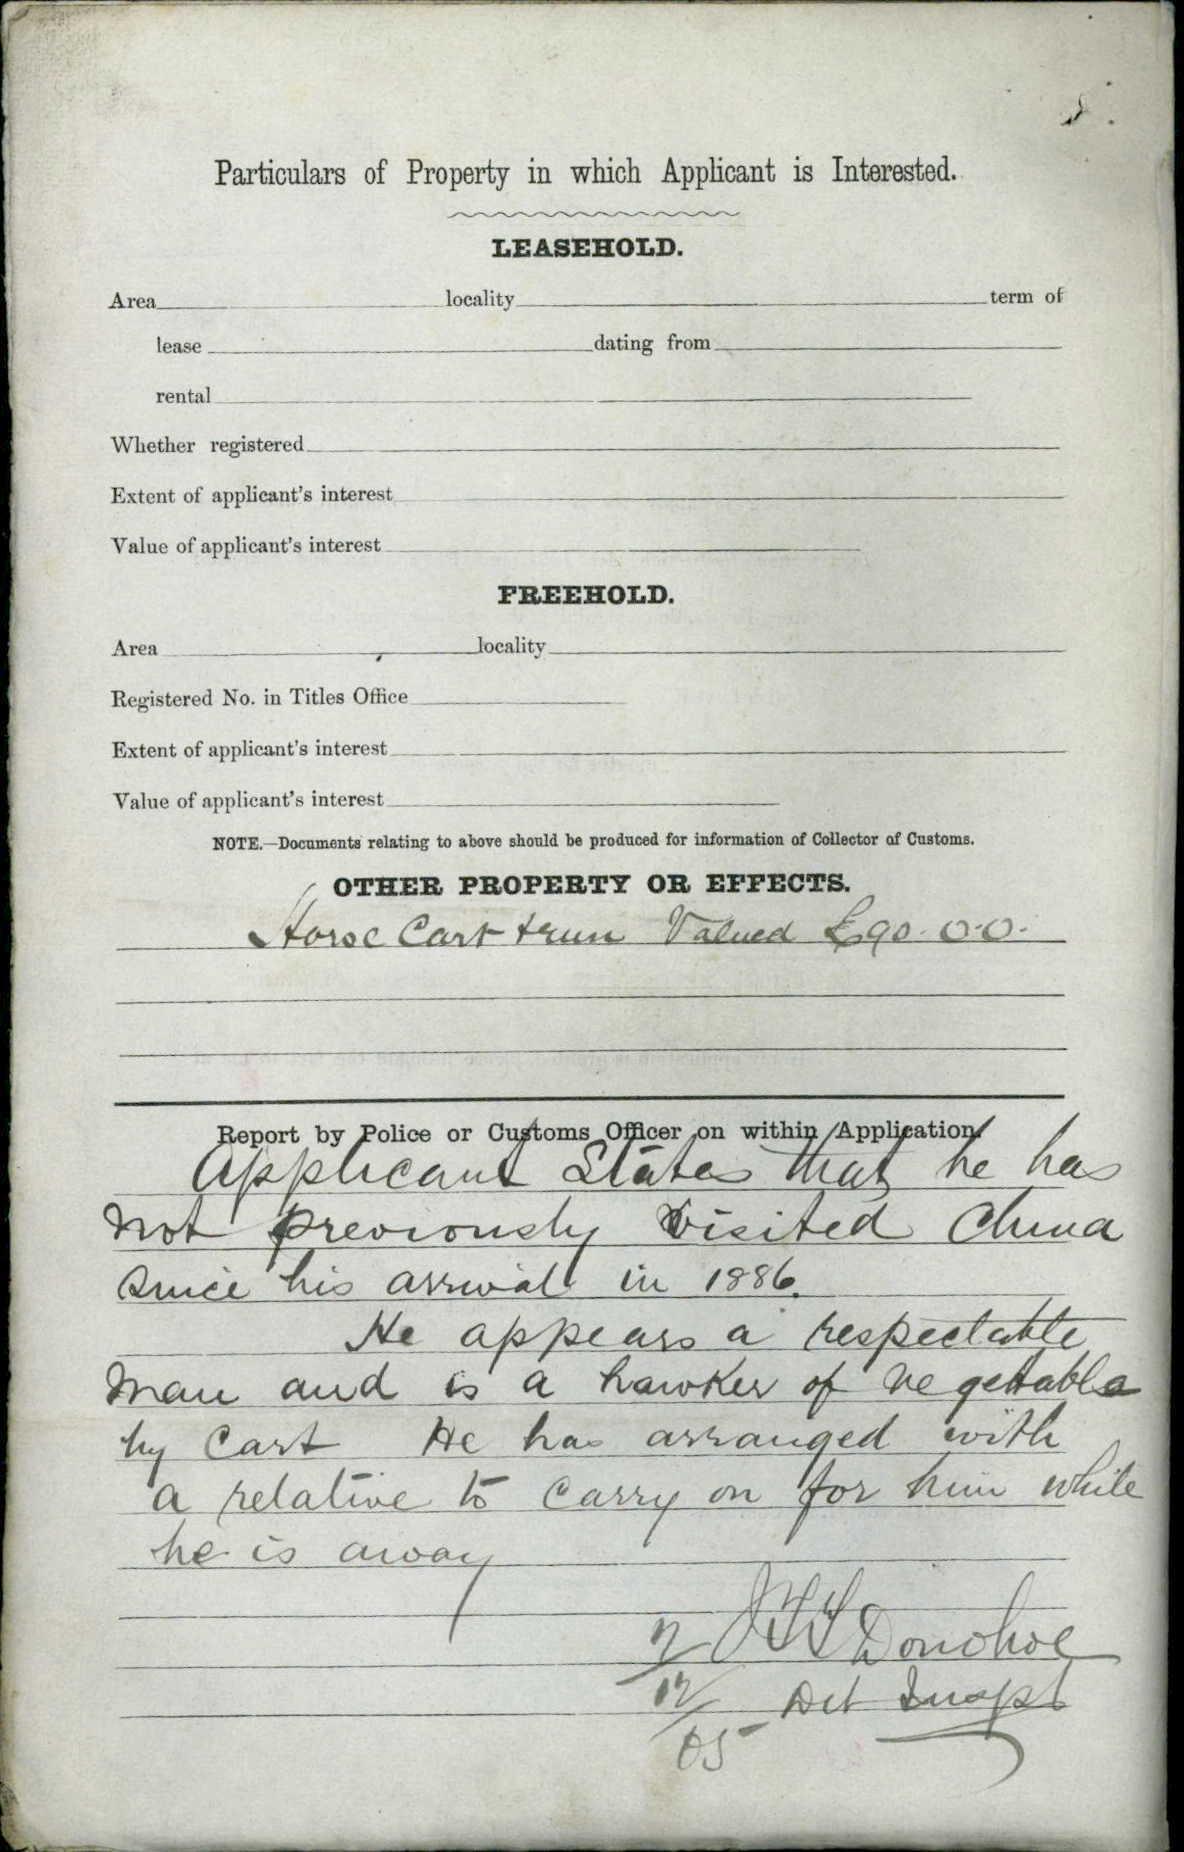 Particulars of Property in which Applicant is Interested.
LEASEHOLD.
Area locality term of
lease dating from
rental
Whether registered
Extent of applicant's interest
Value of applicant's interest
FREEHOLD.
Area locality
Registered No. in Titles Office
Extent of applicant's interest
Value of applicant's interest
NOTE.—Documents relating to above should be produced for information of Collector of Customs.
OTHER PROPERTY OR EFFECTS.
Horse Cart Valued £90.0.0.
Report by Police or Customs Officer on within Application.
Applicant States that he has
not previously visited China
since his arrival in 1886.
He appears a respectable
man and is a hawker of vegetable
by Cart He has arranged with
a relative to carry on for him while
he is away
Donohoe
12/ Det Inspt
05